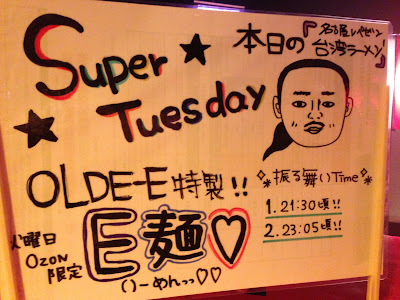 Super
Tuesday
本日の『名古屋レペゼン
台湾ラーメン』
OLDE-E特製!!
火曜日
OZON
限定
E麺♡
いーめんっっ♡♡
振る舞いTime
1. 21:30頃!!
2. 23:05頃!!